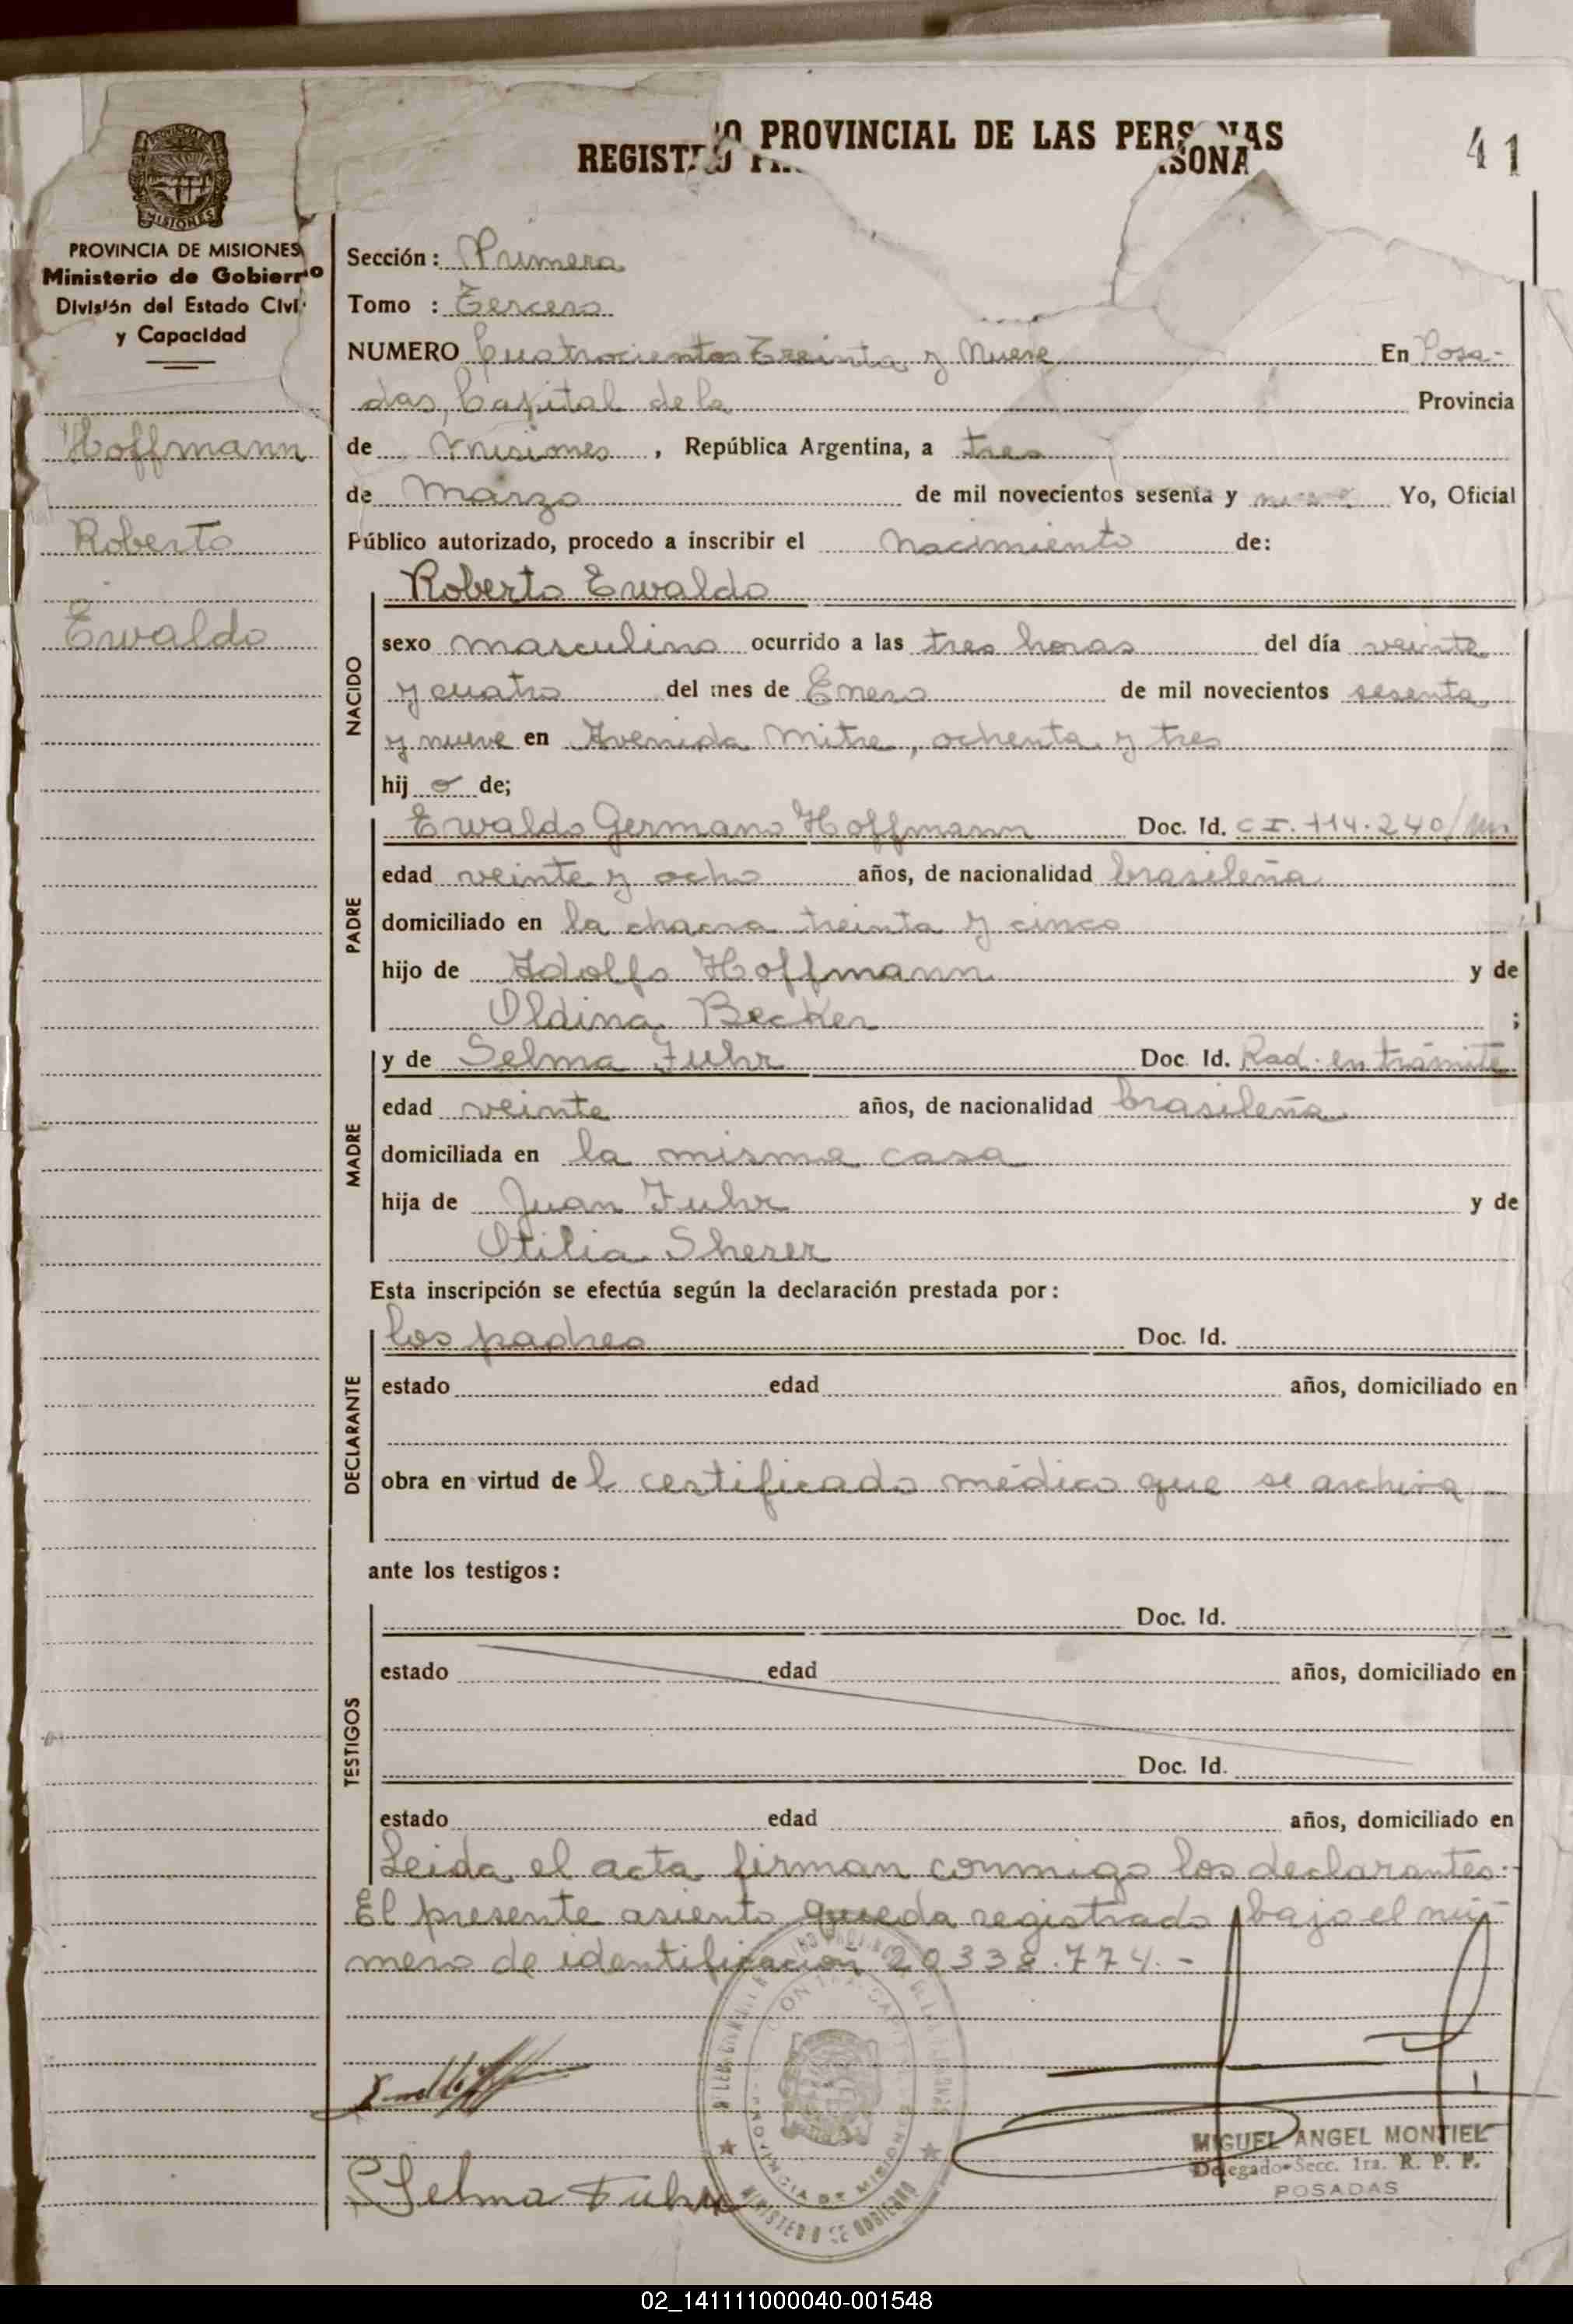 REGISTRO PROVINCIAL DE LAS PERSONAS
SONA
41
MISIONES
PROVINCIA DE MISIONES
Ministerio de Gobierno
División del Estado Civil
y Capacidad
Hoffmann
Roberto
Ewaldo
Sección: Primera
Tomo : Tercero
NUMERO Cuatrocientos Treinta y Nueve En Posa-
das, Capital de la Provincia
de Misiones, República Argentina, a tres
de Marzo de mil novecientos sesenta y nueve Yo, Oficial
Público autorizado, procedo a inscribir el nacimiento de:
Roberto Ewaldo
NACIDO
sexo masculino ocurrido a las tres horas del día veinte
y cuatro del mes de Enero de mil novecientos sesenta
y nueve en Avenida Mitre, ochenta y tres
hijo de;
PADRE
Ewaldo Germano Hoffmann Doc. Id. C.I. 114.240/Mn
edad veinte y ocho años, de nacionalidad brasileña
domiciliado en la chacra treinta y cinco
hijo de Adolfo Hoffmann y de
Oldina Becker ;
MADRE
y de Selma Fuhr Doc. Id. Rad. en trámite
edad veinte años, de nacionalidad brasileña
domiciliada en la misma casa
hija de Juan Fuhr y de
Otilia Sherer
Esta inscripción se efectúa según la declaración prestada por:
DECLARANTE
los padres Doc. Id.
estado edad años, domiciliado en
obra en virtud del certificado médico que se archiva
ante los testigos:
TESTIGOS
Doc. Id.
estado edad años, domiciliado en
Doc. Id.
estado edad años, domiciliado en
Leida el acta firman conmigo los declarantes.-
El presente asiento queda registrado bajo el nú-
mero de identificación 20338.774.-
Selma Fuhr
PROVINCIA DE MISIONES
MINISTERIO DE GOBIERNO
MIGUEL ANGEL MONTIEL
Delegado Secc. 1ra. R. P. P.
POSADAS
02_141111000040-001548